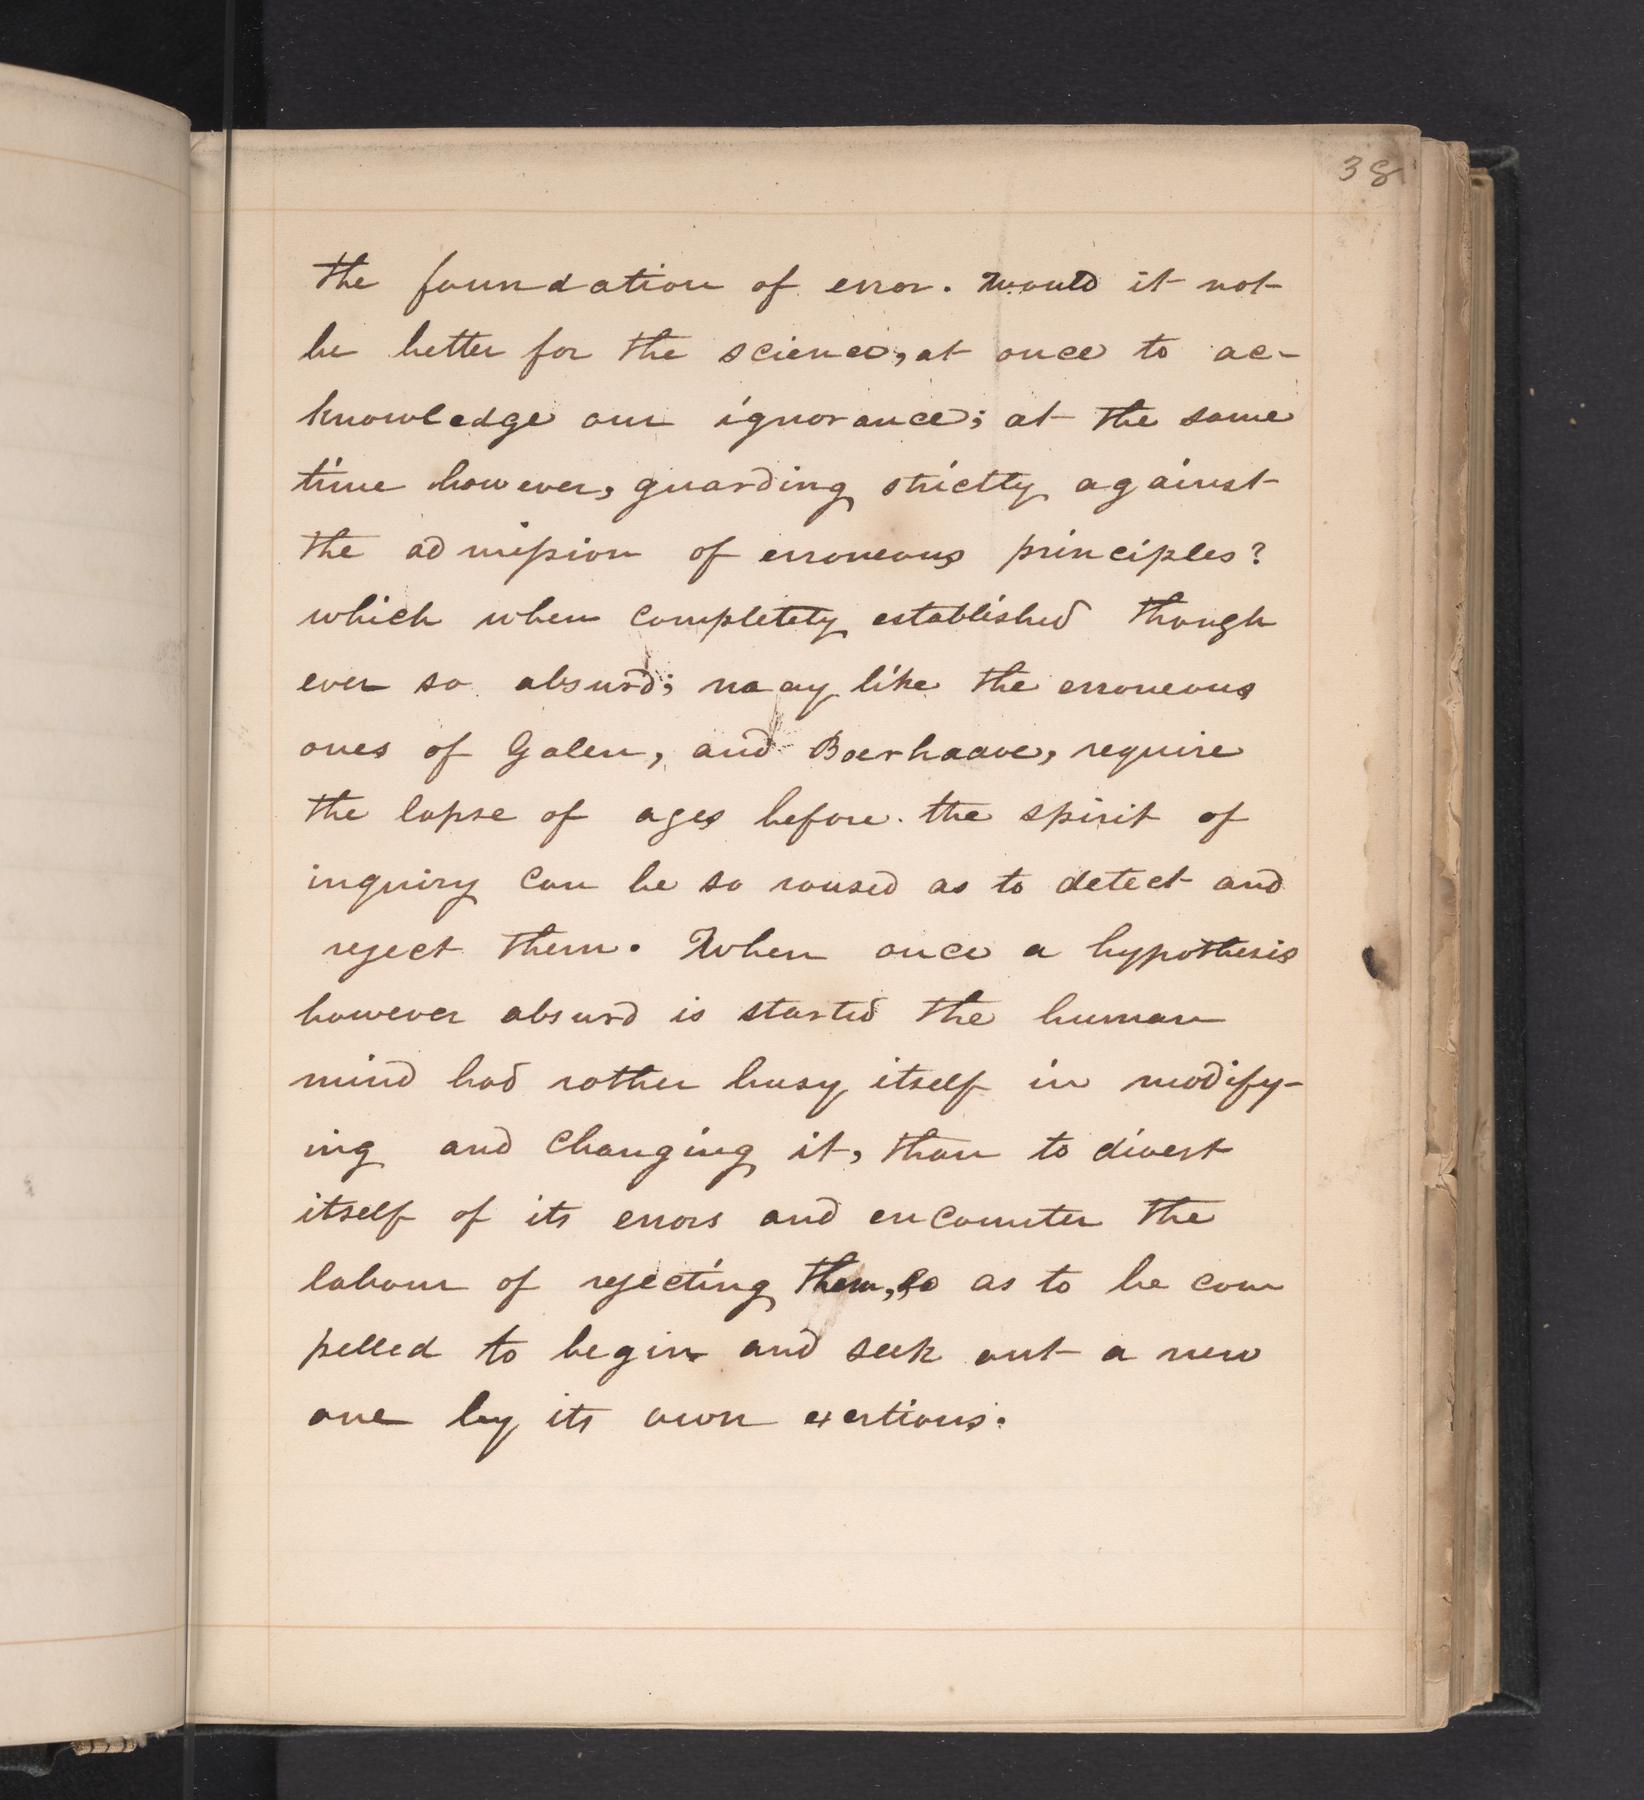 38
the foundation of error. Would it not
be better for the science, at once to ac-
knowledge our ignorance; at the same
time however, guarding strictly against
the admission of erroneous principles?
which when completely established though
ever so absurd; may like the erroneous
ones of Galen, and Boerhaave, require
the lapse of ages before the spirit of
inquiry can be so roused as to detect and
reject them. When once a hypothesis
however absurd is started the human
mind had rather busy itself in modify-
ing and changing it, than to divest
itself of its errors and encounter the
labour of rejecting them, so as to be com
pelled to begin and seek out a new
one by its own exertions.